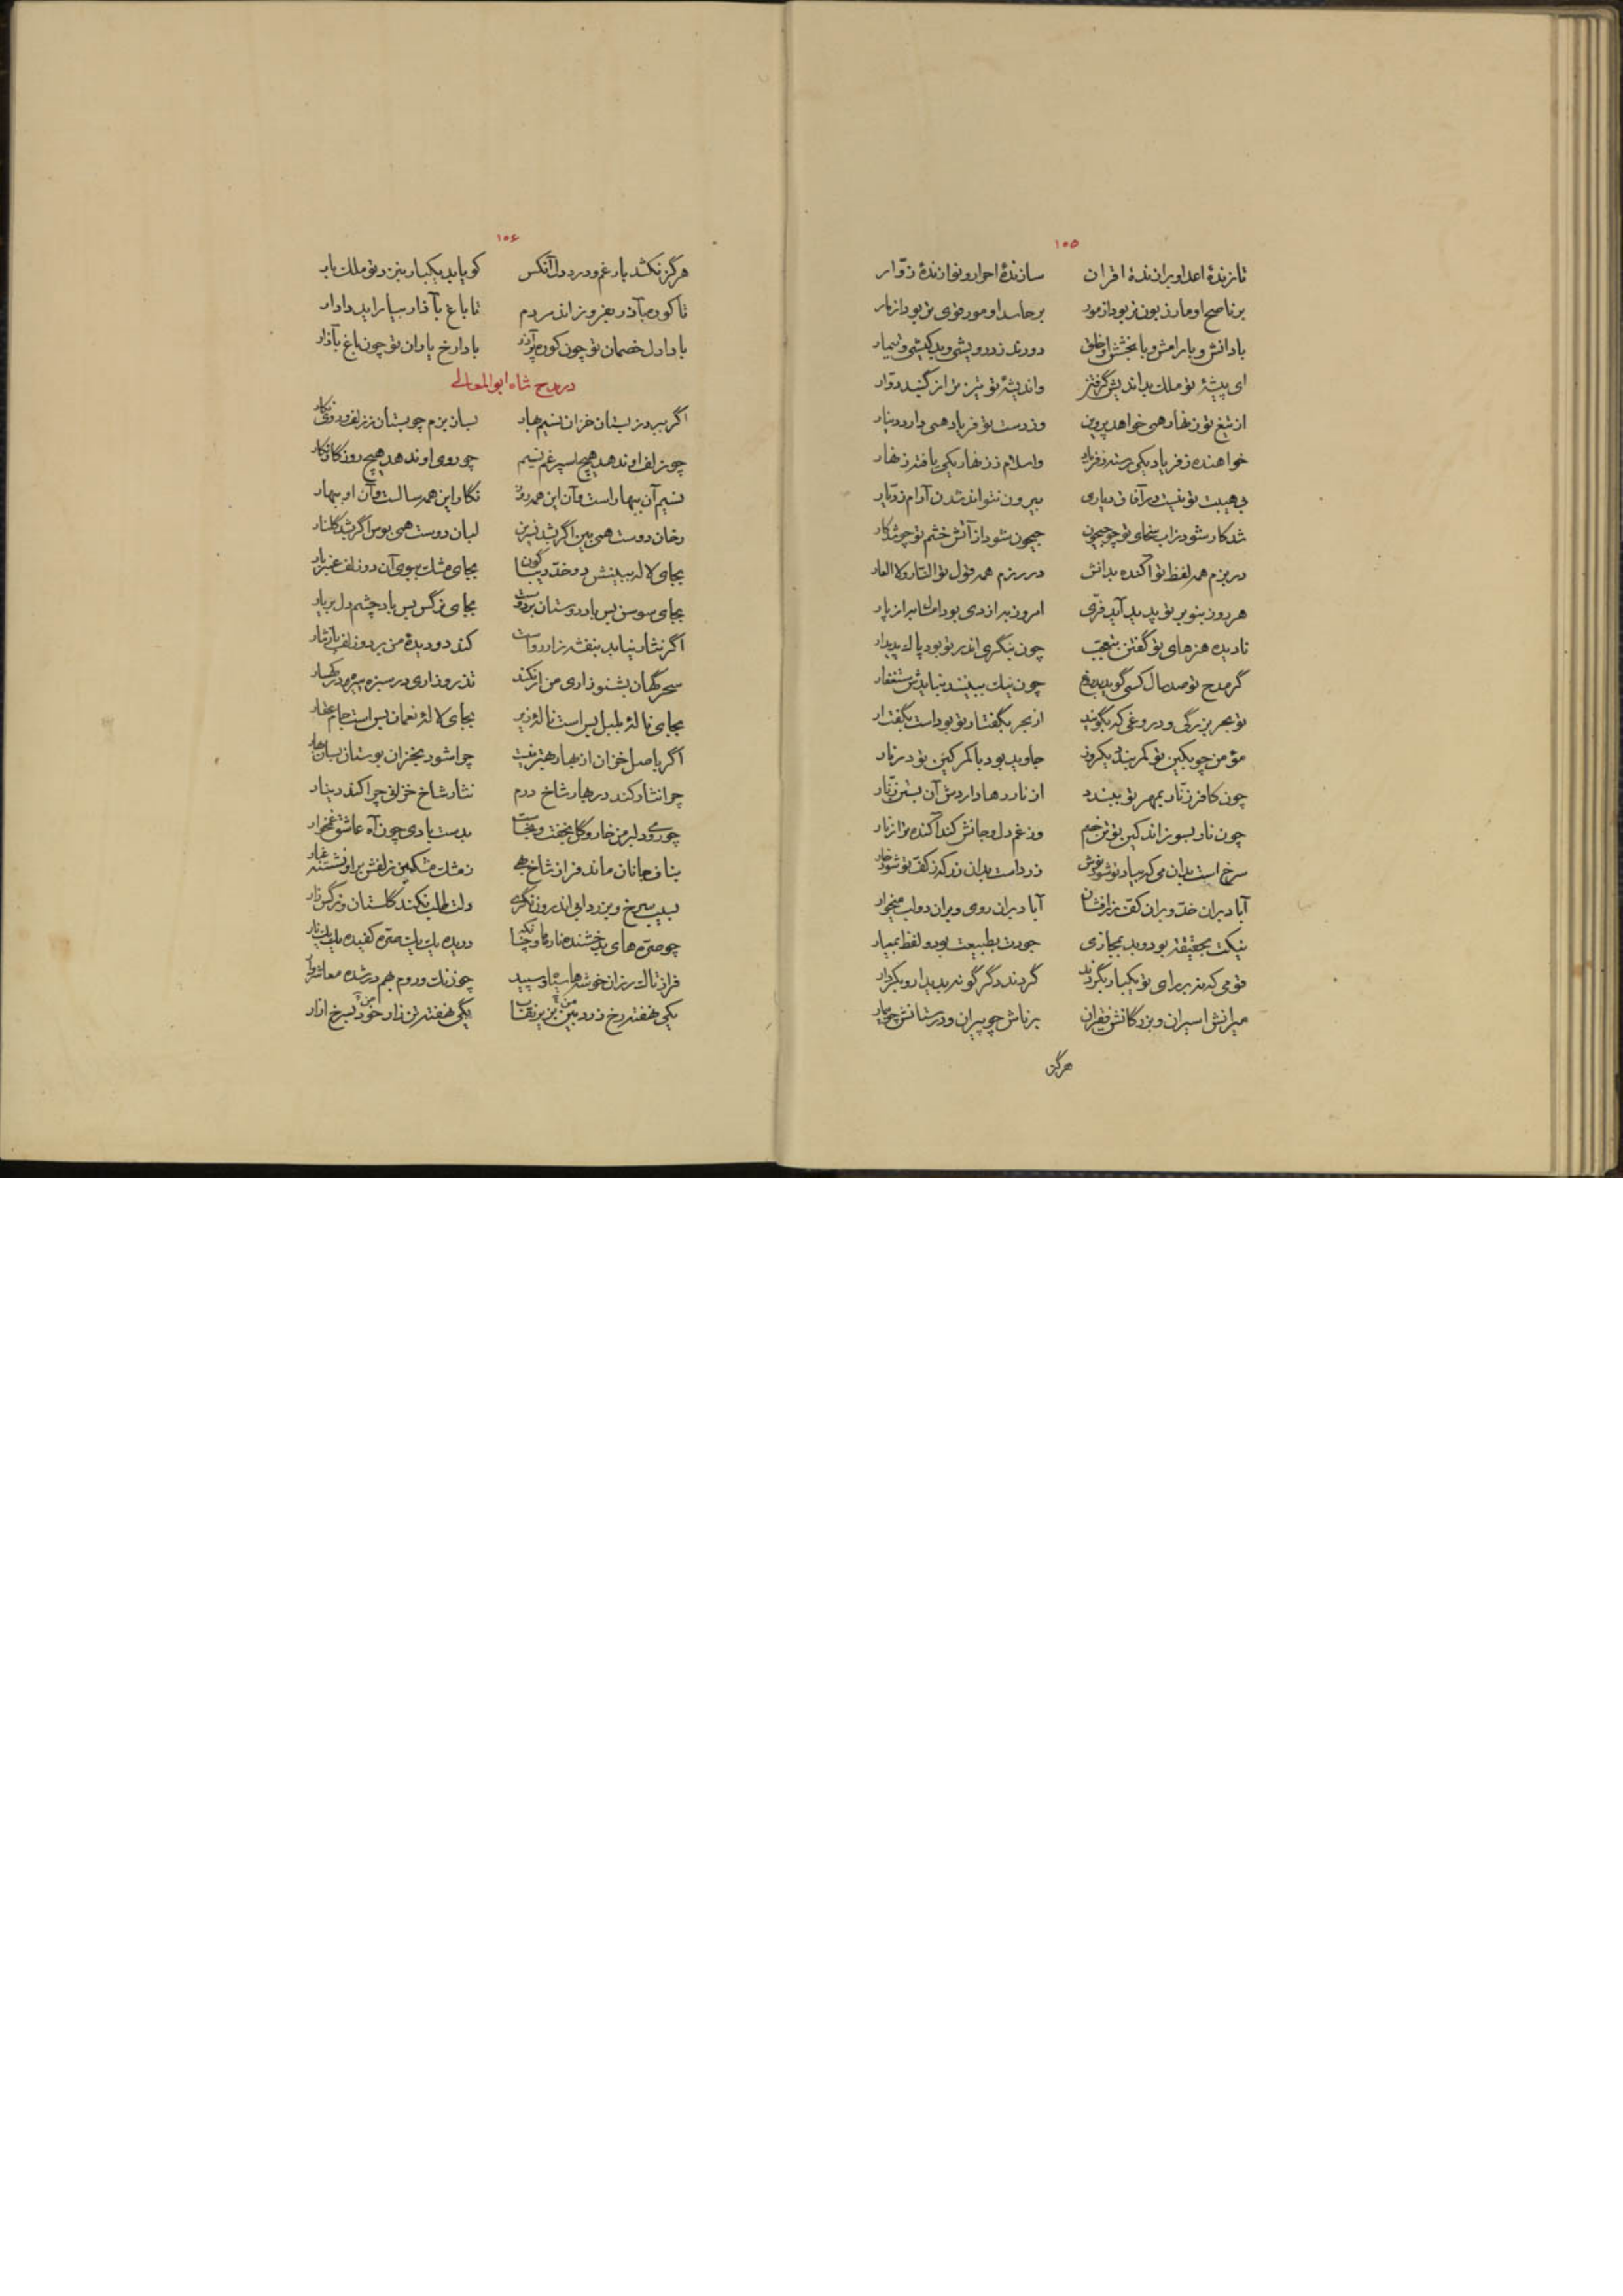 ۱۰۵
تازندهٔ اعدا و براننده اقران سازندهٔ احرار و نوازندهٔ زوّار
بر ناصح او مار زبون تر بود از مور بر حاسد او مور قوی تر بود از مار
با دانش و با رامش و با بخشش او خلق دورند ز درویشی و بدکیشی و تیمار
ای پیشهٔ تو ملک بداندیش گرفتن واندیشهٔ تو برتر از گنبد دوّار
از تیغ تو زنهار همی خواهد پروین وز دست تو فریاد همی دارد دینار
خواهنده ز فریاد یکی رسته ز فریاد واسلام ز زنهار یکی یافته زنهار
بی هیبت تو نیست در آفاق دیاری بیرون نتواند شدن آرام ز دیّار
شدکار شود ز آب سخای تو چو جیحون جیحون شود از آتش خشم تو چو شدکار
در بزم همه لفظ تو آکنده بدانش در رزم همه قول تو النار ولا العار
هر روز بنو بر تو پدید آید فرّی امروز به از دی بود امسال به از پار
نادیده هنرهای تو گفتن بتعجب چون بنگری اندر تو بود پاک پدیدار
گر مدح تو صد سال کسی گوید چون نیک ببیند نباید استغفار
تو بحر بزرگی و دروغی که بگویند از بحر بگفتار تو بود است بگفتار
مؤمن چو بکین تو کمر بندد یکروز جاوید بود با کمر کین تو در نار
چون کافر زنّار بمهر تو ببندد از نار رها داردش آن بستن زنّار
چون نار بسوزاند کین تو تن خصم وز غم دل و جانش کند آکنده تر از نار
سرخ است بدان می که بیاد تو شود نوش زرد است بدان زر که ز کف تو شود خار
آباد بران خدّ و بران کف زرافشان آباد بران روی و بران دولب میخوار
نیکیت بحقیقت بود و بد بمجازی جودت بطبیعت بود و لفظ بمعیار
قومی که نه بر رای تو یکبار بگردند گردند دگرگونه بدیدار و بکردار
میرانش اسیران و بزرگانش فقیران برناش چو پیران و درستانش چو بیمار
هرگز
۱۰۶
هرگز نکشد بار غم و درد دل آنکس کو یابد یکبار بنزد تو ملک بار
تا کوره بآذر بفروز اندر مردم تا باغ بآذار بیاراید دادار
بادا دل خصمان تو چون کوره پرآذر بادا رخ یاران تو چون باغ بآذار
در مدح شاه ابوالمعالی
اگر ببرد ز بستان خزان نسیم بهار بساز بزم چو بستان ز زلف و روی نگار
چو زلف او ندهد هیچ اسپرغم نسیم چو روی او ندهد هیچ روزگار نگار
نسیم آن ببهار است و آن این همه روز نگار این همه سالست و آن او ببهار
رخان دوست همی بین اگر بشد نسرین لبان دوست همی بوس اگر بشد گلنار
بجای لاله ببینش دو خدّ دیباگون بجای مشک ببوی آن دو زلف عنبربار
بجای سوسن بس یاد دوستان بر دوست بجای نرگس بس یاد چشم دل بر یار
اگر نثار نیابد بنفشه زار رواست کند دو دیده من بر دو زلف یار نثار
سحرگهان بشنو زاری من ار نکند تذرو زاری در سبزه میره در کهسار
بجای نالهٔ بلبل بس است نالهٔ زیر بجای لالهٔ نعمان بس است جام عقار
اگر باصل خزان از بهار بهتر نیست چرا شود بخزان بوستان بسان بهار
چرا نثار کند در بهار شاخ درم نثار شاخ خزانی چرا کند دینار
چو روی دلبر من خار و گل بخفت و بخاست بدست باری چون آه عاشق غمخوار
بناف جانان ماند فراز شاخ بهی ز مشک مشکین زلفش بر او نشسته غبار
بسیب سرخ و بزردآبی اندرون نگری دلت طلب نکند گلستان و نرگس زار
چو صرّه های بدخشنده نار ما و چنانکه دریده یک یک صرّه کفیده یک یک نار
فراز تاک رزان خوشهها سیاه و سپید چو زنگ و روم بهم در شده معاشروار
یکی نهفته رخ زرد من بزیر نقاب یکی نهفته تن زار خود بسرخ ازار